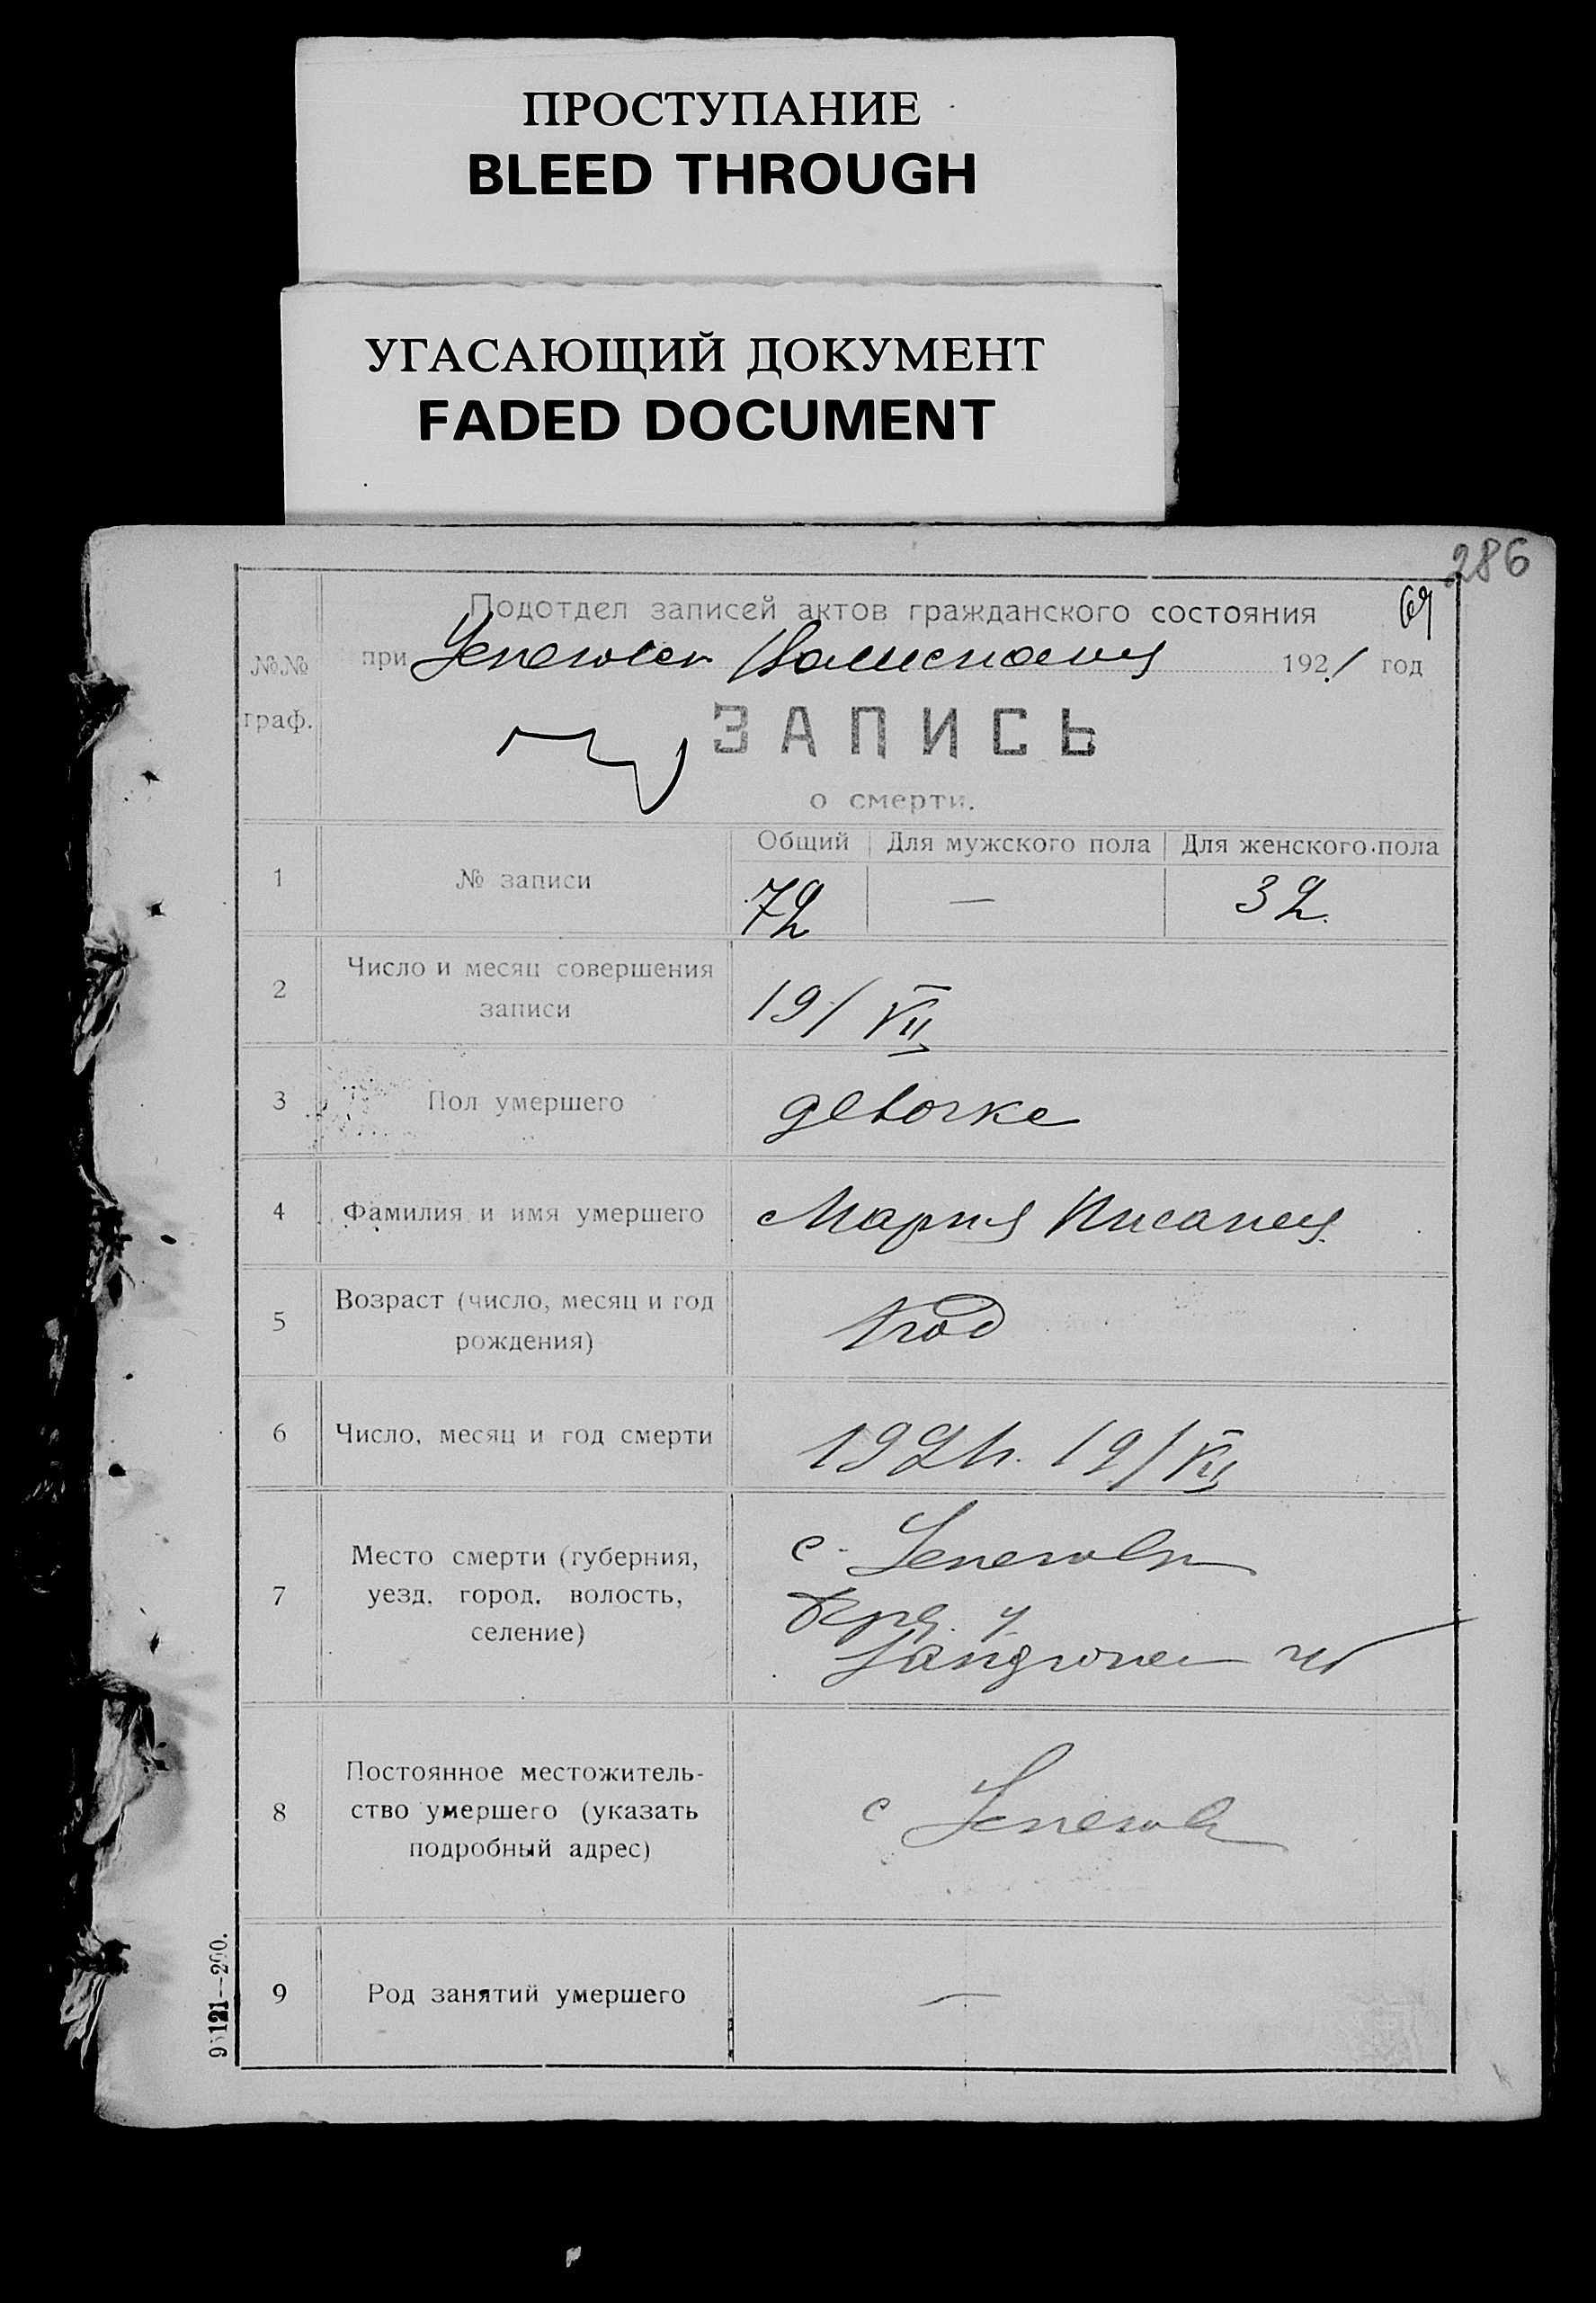 ПРОСТУПАНИЕ
BLEED THROUGH
УГАСАЮЩИЙ ДОКУМЕНТ
FADED DOCUMENT
286
69
Подотдел записей актов гражданского состояния
при 1921 год
№№
граф.
ЗАПИСЬ
о смерти.
Общий Для мужского пола Для женского пола
1 № записи 72 — 32.
2 Число и месяц совершения
записи 19/VII
3 Пол умершего девочке
4 Фамилия и имя умершего Мария Писанец
5 Возраст (число, месяц и год
рождения) 1 год
6 Число, месяц и год смерти 1921 г. 19/VII
7 Место смерти (губерния,
уезд, город, волость,
селение) с.
8 Постоянное местожитель-
ство умершего (указать
подробный адрес) с
9 Род занятий умершего —